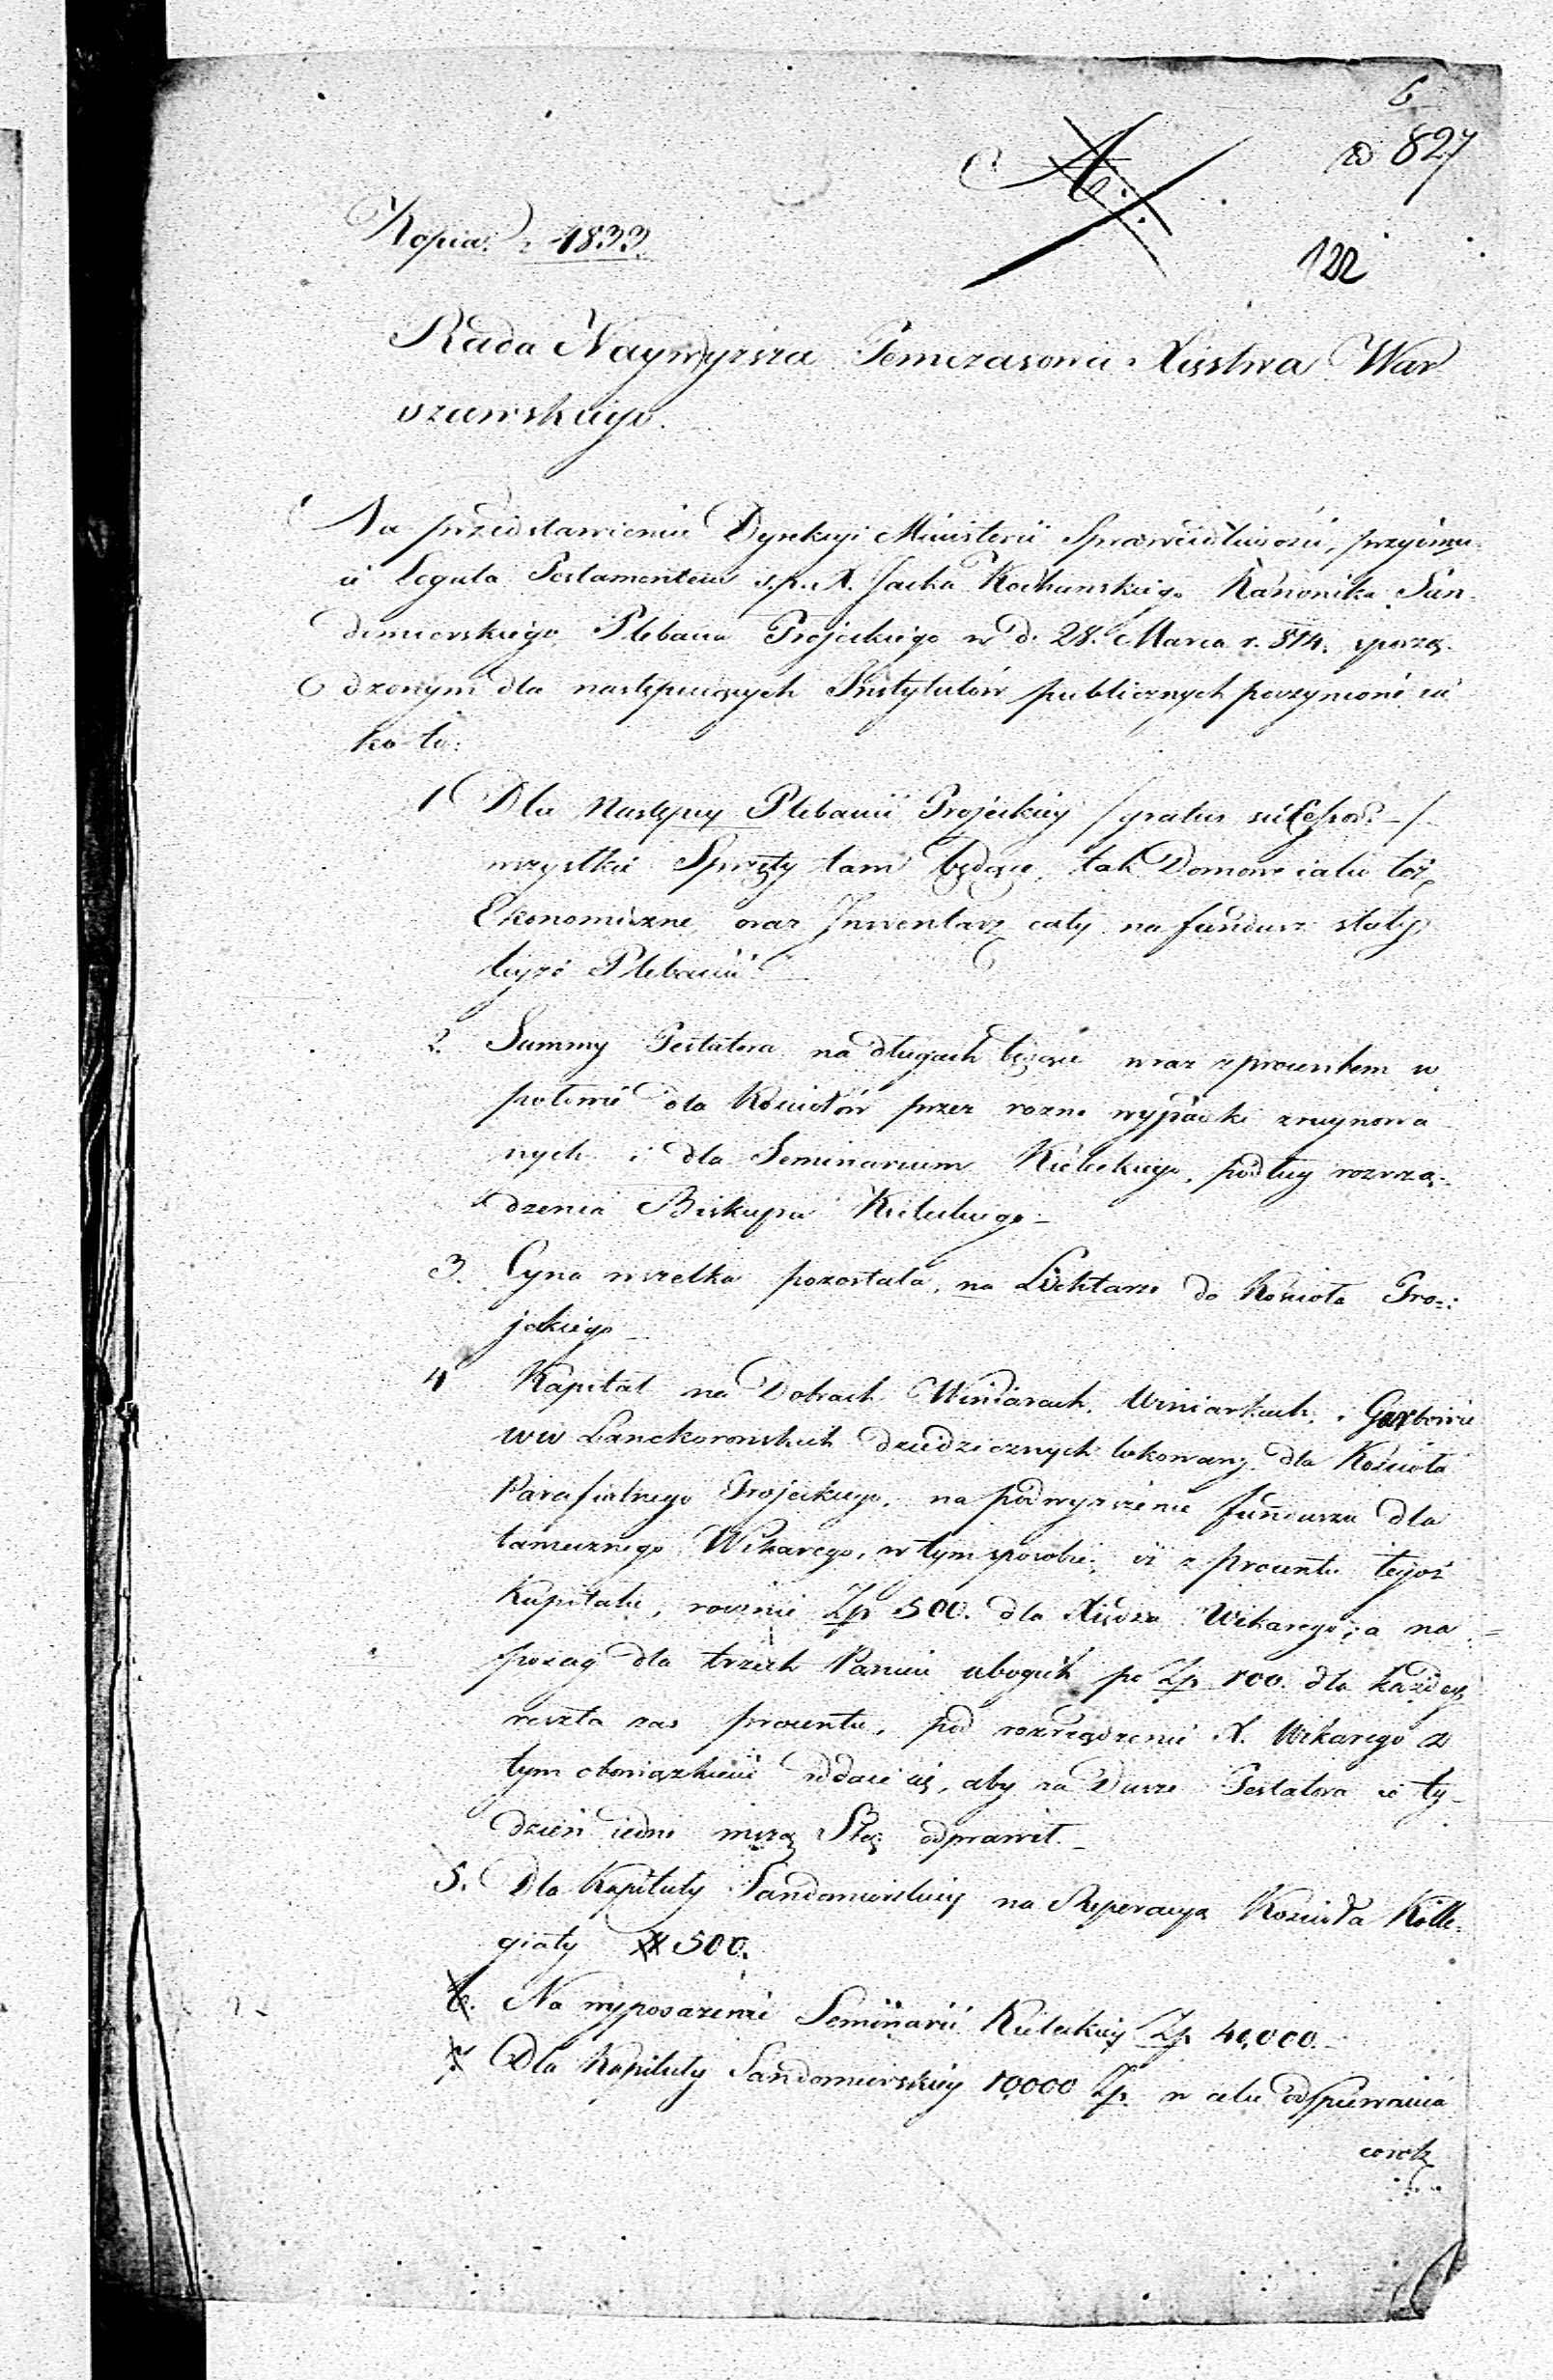 6
ad 827
A.
Kopia. 1833.
122
Rada Naywyższa Temczasowa Xięstwa War
szawskiego.
Na przedstawienie Dyrekcyi Ministerii Sprawiedliwości, przyimu-
ie Legata Testamentem s.p. X. Jacka Kochanskiego Kanonika San-
domierskiego Plebana Trojeckiego w d. 28. Marca r. 814. sporzą-
dzonym dla następuiących Instytutów publicznych poczynione ia
ko to:
1 Dla Następcy Plebanii Trojeckiey /gratus
wszystkie Sprzęty tam będące, tak Domowe iako też
Ekonomiczne, oraz Inwentarz cały na fundusz stały
teyże Plebanii
2. Summy Testatora na długach będące wraz z procentem w
połowie dla Kościołów przez rozne wypadki zruynowa
nych i dla Seminarium Kieleckiego, podług rozrzą-
dzenia Biskupa Kieleckiego _
3. Cyna wszelka pozostała, na Lichtarze do Kościoła Tro-
jeckiego _
4 Kapitał na Dobrach Winiarach, Winiarkach, i Garbowie
WW Lanckoronskich dziedzicznych lokowany dla Kościoła
Parafialnego Trojeckiego, na podwyższenie funduszu dla
tamecznego Wikarego, w tym sposobie; iż z procentu tegoż
Kapitału, rocznie Zp 500. dla Xiędza Wikarego; a na
posag dla trzech Panien ubogich po Zp 100. dla każdey,
reszta zas procentu, pod rozrządzenie X. Wikarego z
tym obowiązkiem oddaie się, aby za Dusze Testatora co ty-
dzień iedne mszą Stą odprawił. _
5. Dla Kapituły Sandomirskiey na Reperacyą Kościoła Kolle-
giaty # 500.
6. Na wyposażenie Seminarii Kieleckiey Zp 40,000. _
7 Dla Kapituły Sandomirskiey 10,000 Zp. w celu odspiewania
corok